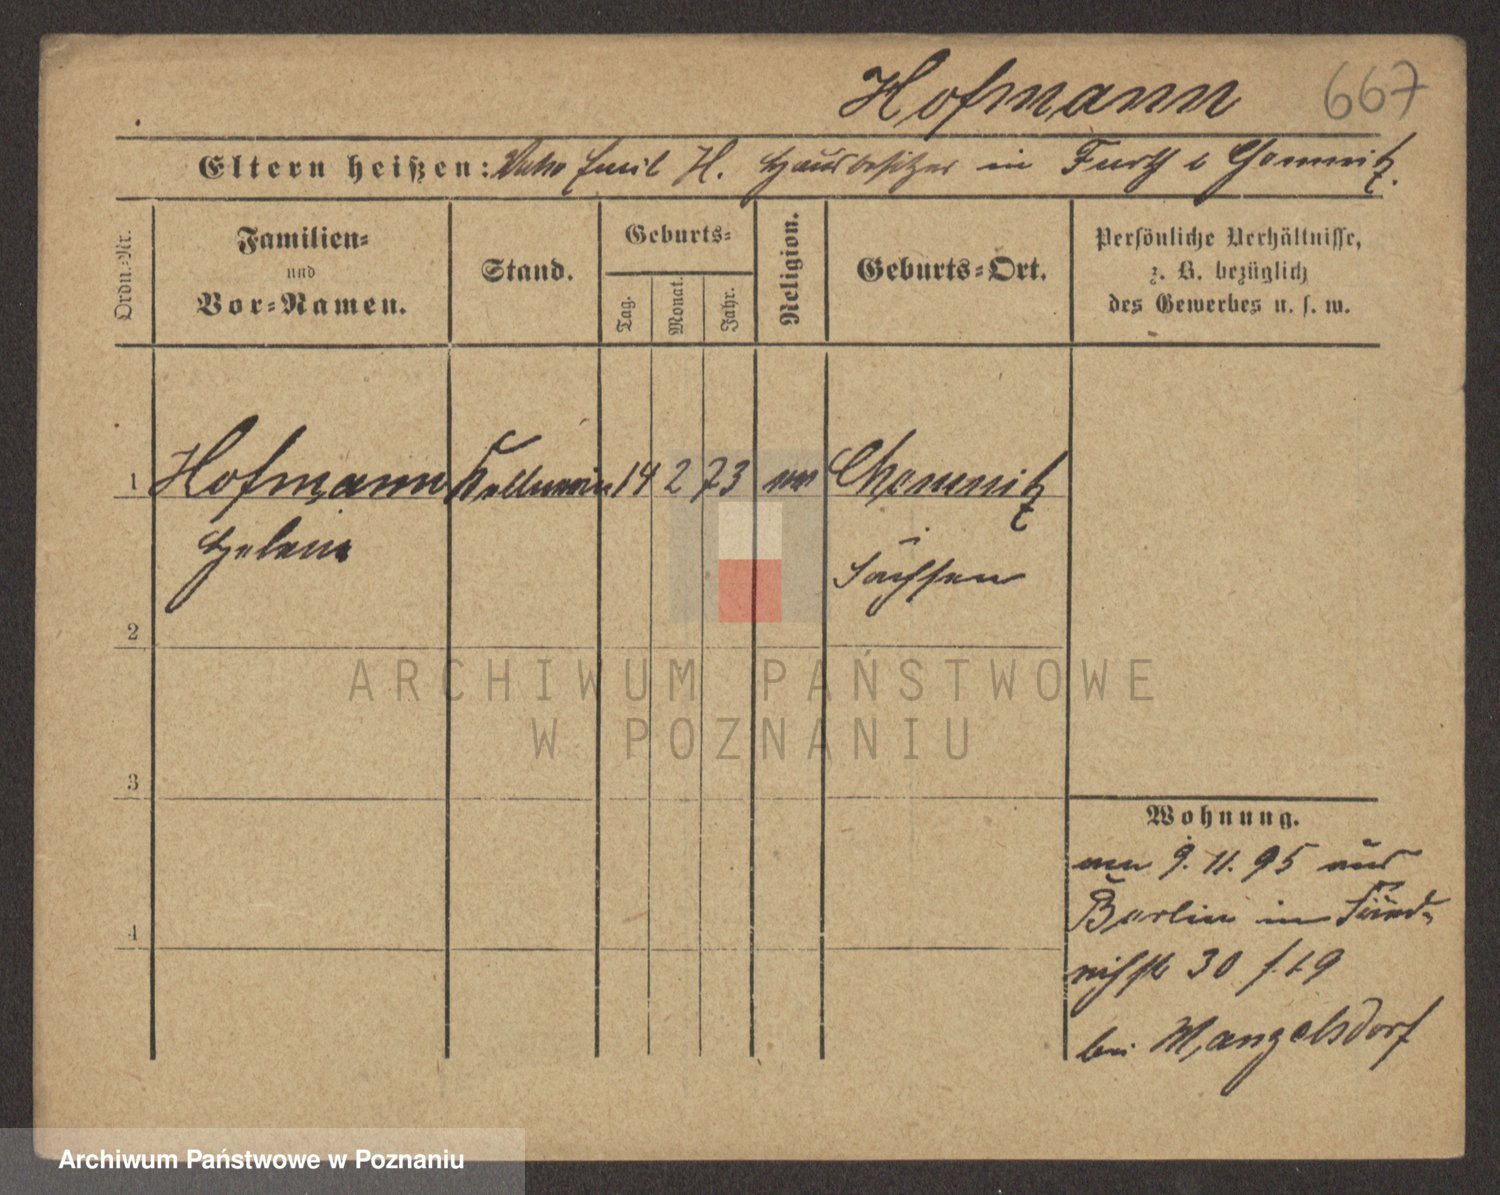 Hofmann 667
Eltern heißen: Vater Emil H. Hausbesitzer in Furth b Chemnitz.
Ordn.-Nr.
Familien-
und
Vor-Namen.
Stand.
Geburts-
Tag.
Monat.
Jahr.
Religion.
Geburts-Ort.
Persönliche Verhältnisse,
z. B. bezüglich
des Gewerbes u. s. w.
1 Hofmann Kellnerin 14 2 73 ev Chemnitz
Helene Sachsen
2
ARCHIWUM PAŃSTWOWE
W POZNANIU
3
Wohnung.
9. 11. 95 aus
4
Berlin in
30
bei Mangelsdorf
Archiwum Państwowe w Poznaniu